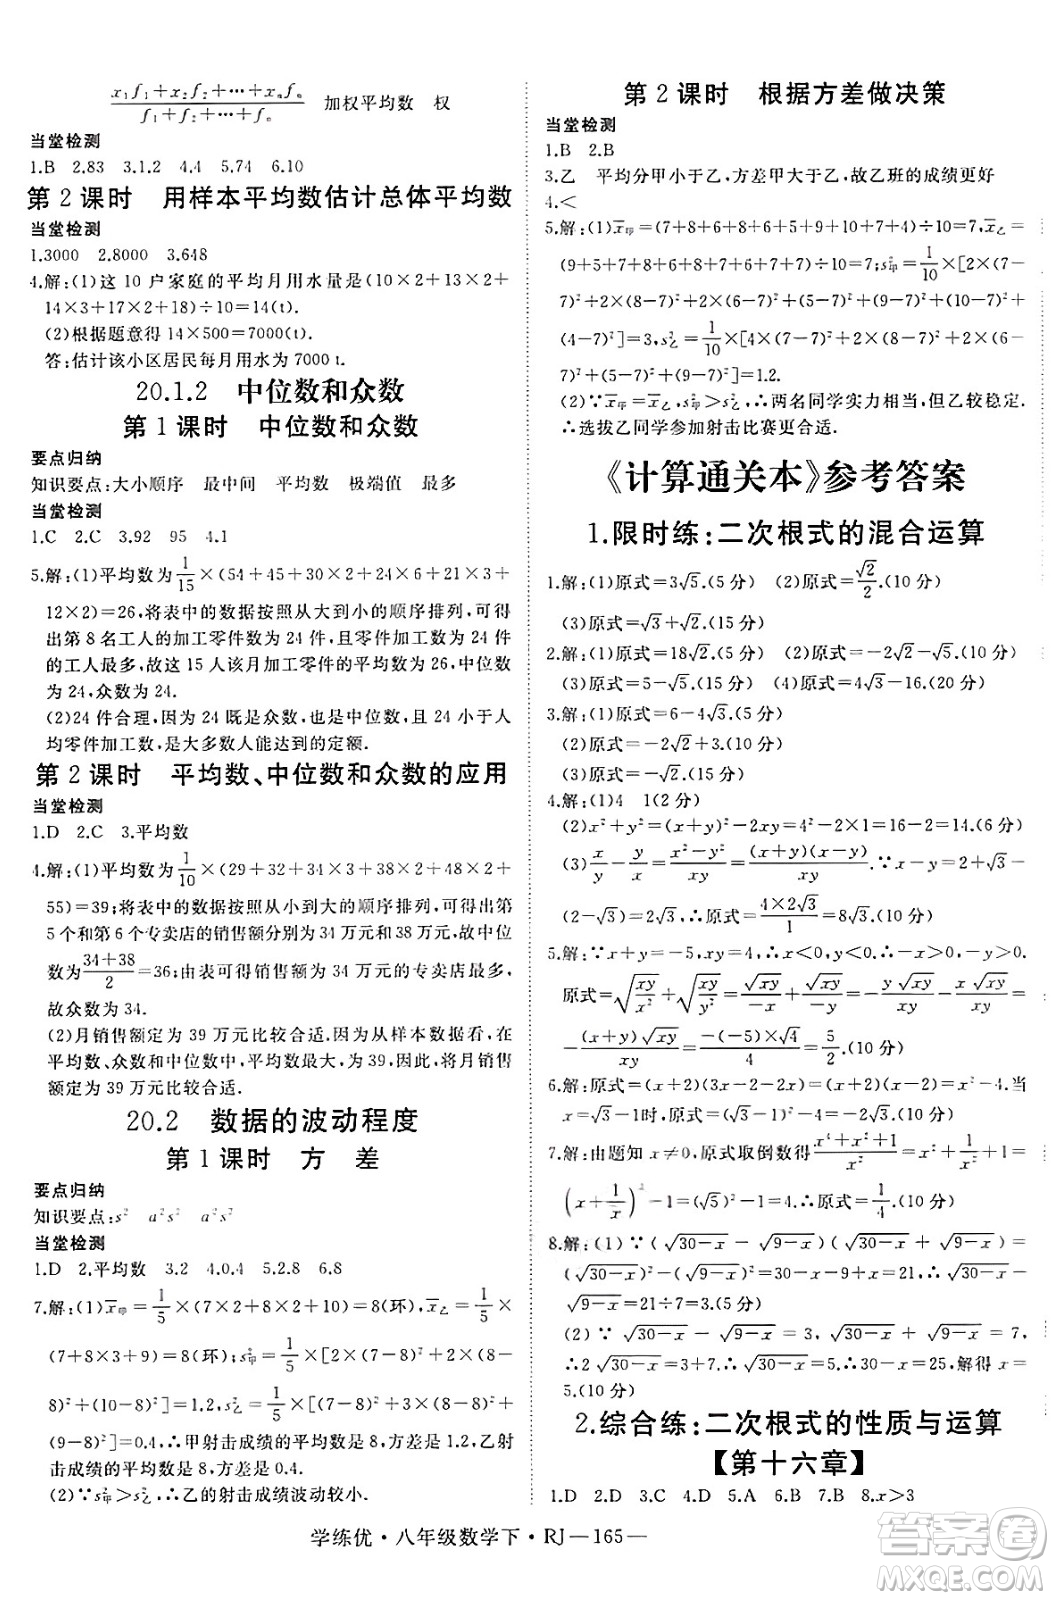 x₁f₁+x₂f₂+···+xₙfₙ / f₁+f₂+···+fₙ 加权平均数 权
当堂检测
1.B 2.83 3.1.2 4.4 5.74 6.10
第2课时 用样本平均数估计总体平均数
当堂检测
1.3000 2.8000 3.648
4.解:(1)这10户家庭的平均月用水量是(10×2+13×2+
14×3+17×2+18)÷10=14(t).
(2)根据题意得14×500=7000(t).
答:估计该小区居民每月用水为7000 t.
20.1.2 中位数和众数
第1课时 中位数和众数
要点归纳
知识要点:大小顺序 最中间 平均数 极端值 最多
当堂检测
1.C 2.C 3.92 95 4.1
5.解:(1)平均数为1/15×(54+45+30×2+24×6+21×3+
12×2)=26,将表中的数据按照从大到小的顺序排列,可得
出第8名工人的加工零件数为24件,且零件加工数为24件
的工人最多,故这15人该月加工零件的平均数为26,中位数
为24,众数为24.
(2)24件合理,因为24既是众数,也是中位数,且24小于人
均零件加工数,是大多数人能达到的定额.
第2课时 平均数、中位数和众数的应用
当堂检测
1.D 2.C 3.平均数
4.解:(1)平均数为1/10×(29+32+34×3+38×2+48+
55)=39;将表中的数据按照从小到大的顺序排列,可得出第
5个和第6个专卖店的销售额分别为34万元和38万元,故中位
数为34+38/2=36;由表可得销售额为34万元的专卖店最多,
故众数为34.
(2)月销售额定为39万元比较合适.因为从样本数据看,在
平均数、众数和中位数中,平均数最大,为39万元,故月销售
额定为39万元比较合适.
20.2 数据的波动程度
第1课时 方 差
要点归纳
知识要点:s² a²s² a²s²
当堂检测
1.D 2.平均数 3.2 4.0.4 5.2.8 6.8
7.解:(1)x̄甲=1/5×(7×2+8×2+10)=8(环),x̄乙=1/5×
(7+8×3+9)=8(环);s²甲=1/5×[2×(7-8)²+2×(8-
8)²+(10-8)²]=1.2,s²乙=1/5×[(7-8)²+3×(8-8)²+
(9-8)²]=0.4,∴甲射击成绩的平均数为8,方差是1.2,乙射
击成绩的平均数为8,方差是0.4.
(2)∵s²甲>s²乙,∴乙的射击成绩波动较小.
第2课时 根据方差做决策
当堂检测
1.B 2.B
3.乙 平均分甲小于乙,方差甲大于乙,故乙班的成绩更好
4.<
5.解:(1)x̄甲=(7+8+6+8+6+5+9+10+7+4)÷10=7,x̄乙=
(9+5+7+8+6+8+7+6+7+7)÷10=7;s²甲=1/10×[2×(7-
7)²+2×(8-7)²+2×(6-7)²+(5-7)²+(9-7)²+(10-7)²+
(4-7)²]=3,s²乙=1/10×[4×(7-7)²+2×(8-7)²+2×(6-
7)²+(5-7)²+(9-7)²]=1.2.
(2)∵x̄甲=x̄乙,s²甲>s²乙,∴两名同学实力相当,但乙较稳定.
∴选拔乙同学参加射击比赛更合适.
《计算通关本》参考答案
1.限时练:二次根式的混合运算
1.解:(1)原式=3√5.(5分) (2)原式=√2/2.(10分)
(3)原式=√3+√2.(15分)
2.解:(1)原式=18√2.(5分) (2)原式=-√2-√5.(10分)
(3)原式=5-√5.(15分) (4)原式=4√3-16.(20分)
3.解:(1)原式=6-4√3.(5分)
(2)原式=-2√2+3.(10分)
(3)原式=-2.(15分)
4.解:(1)4 1(2分)
(2)x²+y²=(x+y)²-2xy=4²-2×1=16-2=14.(6分)
(3)x/y-y/x=x²-y²/xy=(x+y)(x-y)/xy.∵x-y=2+√3-
(2-√3)=2√3,∴原式=4×2√3/1=8√3.(10分)
5.解:∵x+y=-5,xy=4,∴x<0,y<0.∴-x>0,-y>0.
原式=√xy/x²+√xy/y²=√xy/-x+√xy/-y=-y√xy/xy-x√xy/xy=
-(x+y)√xy/xy=-(-5)×√4/4=5/2.(10分)
6.解:原式=(x+2)(3x-2-2x)=(x+2)(x-2)=x²-4.当
x=√5-1时,原式=(√5-1)²-4=2-2√5.(10分)
7.解:由题知x≠0,故该式取倒数得x⁴+x²+1/x²=x²+1/x²+1=
(x+1/x)²-1=(√5)²-1=4,∴原式=1/4.(10分)
8.解:(1)∵(√30-x-√9-x)(√30-x+√9-x)=
(√30-x)²-(√9-x)²=(30-x)-(9-x)=21,∴√30-x-
√9-x=21÷7=3.(5分)
(2)∵√30-x-√9-x=3,√30-x+√9-x=7,
∴2√30-x=10,即√30-x=5,∴30-x=25,解得x=
5.(10分)
2.综合练:二次根式的性质与运算
【第十六章】
1.D 2.D 3.C 4.D 5.A 6.B 7.B 8.x>3
学练优·八年级数学下·RJ—165—